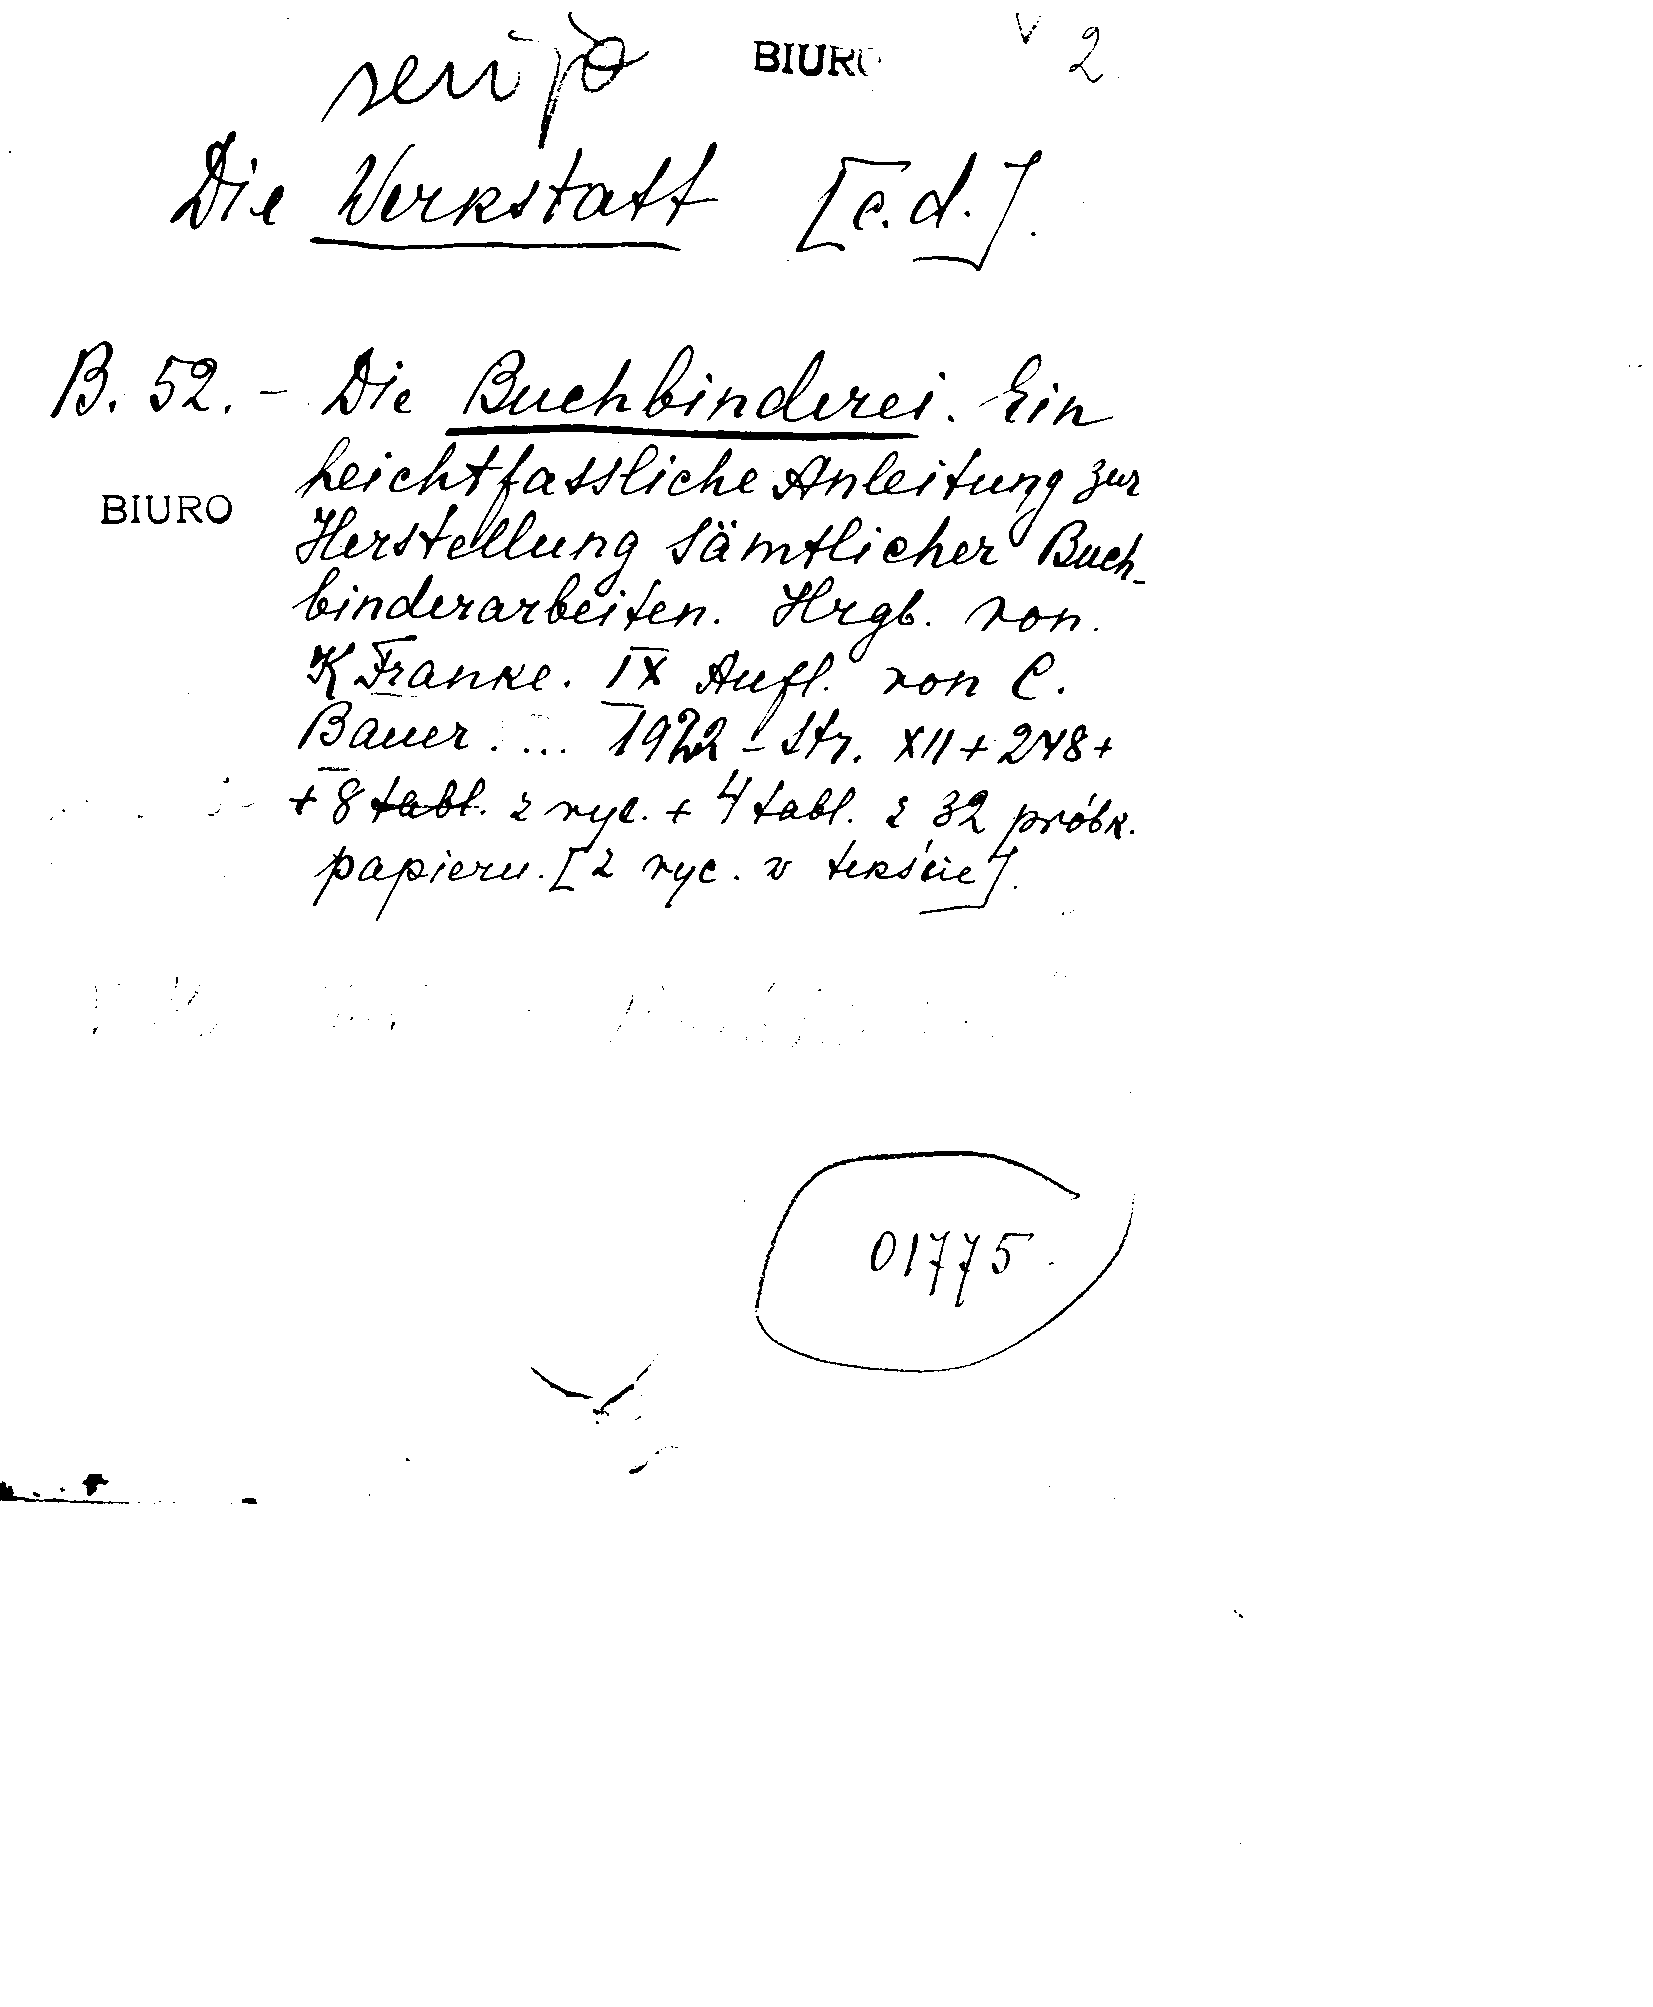 serija BIURO 2
Die Werkstatt [c.d.].
B. 52. - Die Buchbinderei. Ein
leichtfassliche Anleitung zur
BIURO
Herstellung sämtlicher Buch-
binderarbeiten. Hrgb. von.
K Franke. IX Aufl. von C.
Bauer.... 1922 - Str. XII + 248 +
+ 8 tabl. z ryc. + 4 tabl. z 32 próbk.
papieru. [z ryc. w tekście].
01775.